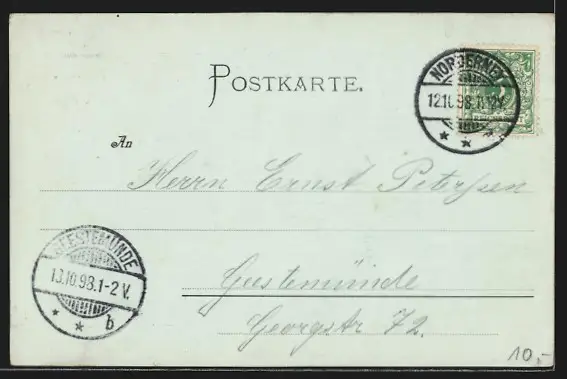 POSTKARTE.
NORDERNEY
12.10.98.11-12V.
REICHSPOST
An
Herrn Ernst Petersen
GEESTEMÜNDE
13.10.98.1-2V.
b
Geestemünde
Georgstr 72.
10,-